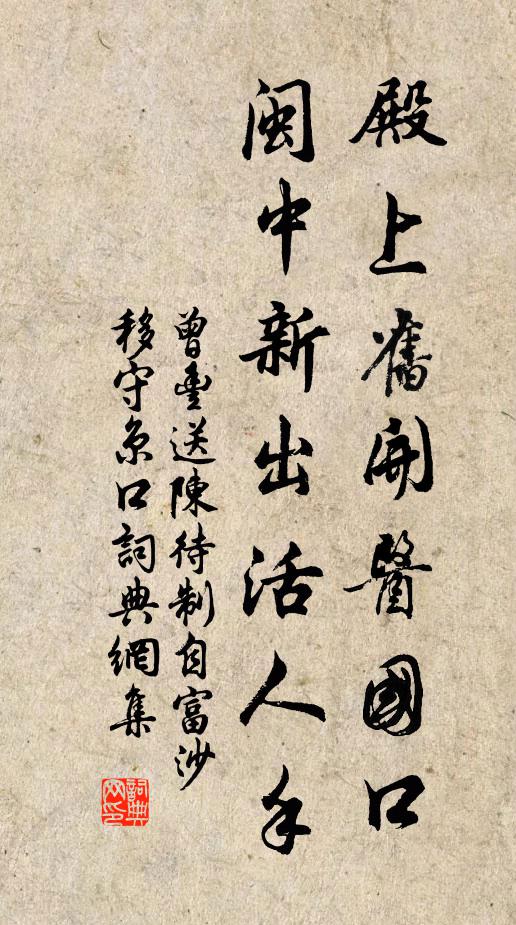 殿上舊開醫國口
閩中新出活人手
曾豐送陳待制自富沙
移守京口詞典網集
詞典
网印